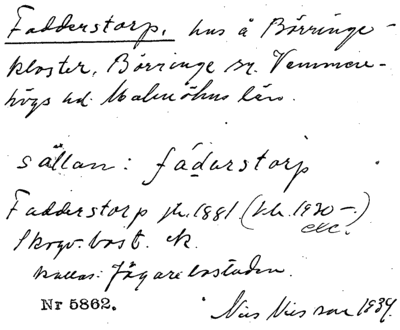 Fadderstorp, hus å Börringe-
kloster, Börringe sn. Vemmen-
högs hd. Malmöhus län.
sällan: fádarstorp
Fadderstorp jb. 1881 (kh. 1920 –.)
etc.
Skogv. bost. ek.
kallas: Jägarebostaden.
Nr 5862. Nils Nilsson 1934.